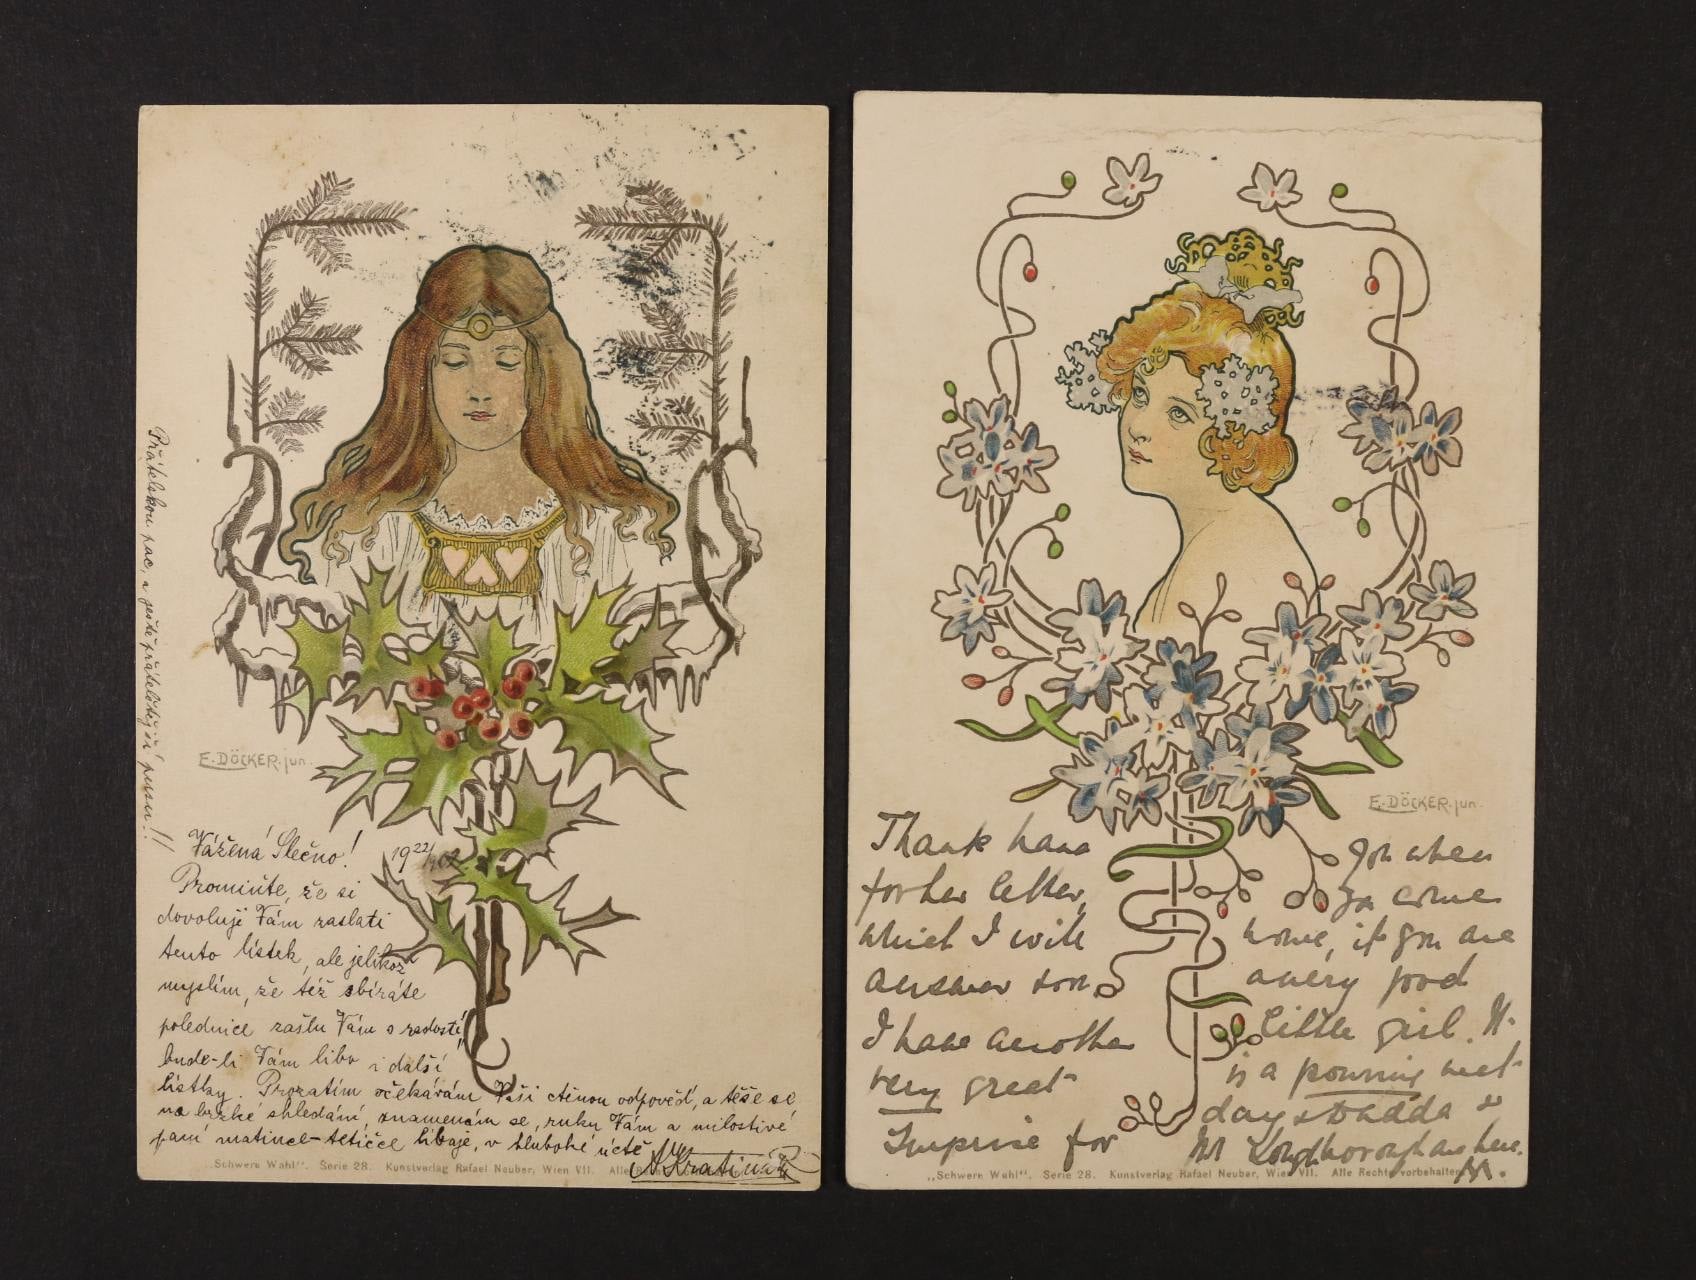 Přátelskou pac, a ještě přátelštější pusu!!
E. DÖCKER. jun.
Vážená Slečno! 19 22/4 02
Promiňte, že si
dovoluji Vám zaslati
tento lístek, ale jelikož
myslím, že též sbíráte
pohlednice zašlu Vám s radostí,
bude-li Vám libo i další
lístky. Prozatím očekávám Vaši ctěnou odpověď, a těše se
na brzké shledání, znamenám se, ruku Vám a milostivé
paní matince-tetičce líbaje, v hluboké úctě
„Schwere Wahl“. Serie 28. Kunstverlag Rafael Neuber, Wien VII. Alle
E. DÖCKER. jun.
Thank
for her letter,
which I will
answer soon.
I have another
very great
surprise for
you when
you come
home, if you are
a very good
little girl. It
is a pouring wet
day & Dadda &
Mr Loughborough are here.
M.
„Schwere Wahl“. Serie 28. Kunstverlag Rafael Neuber, Wien VII. Alle Rechte vorbehalten